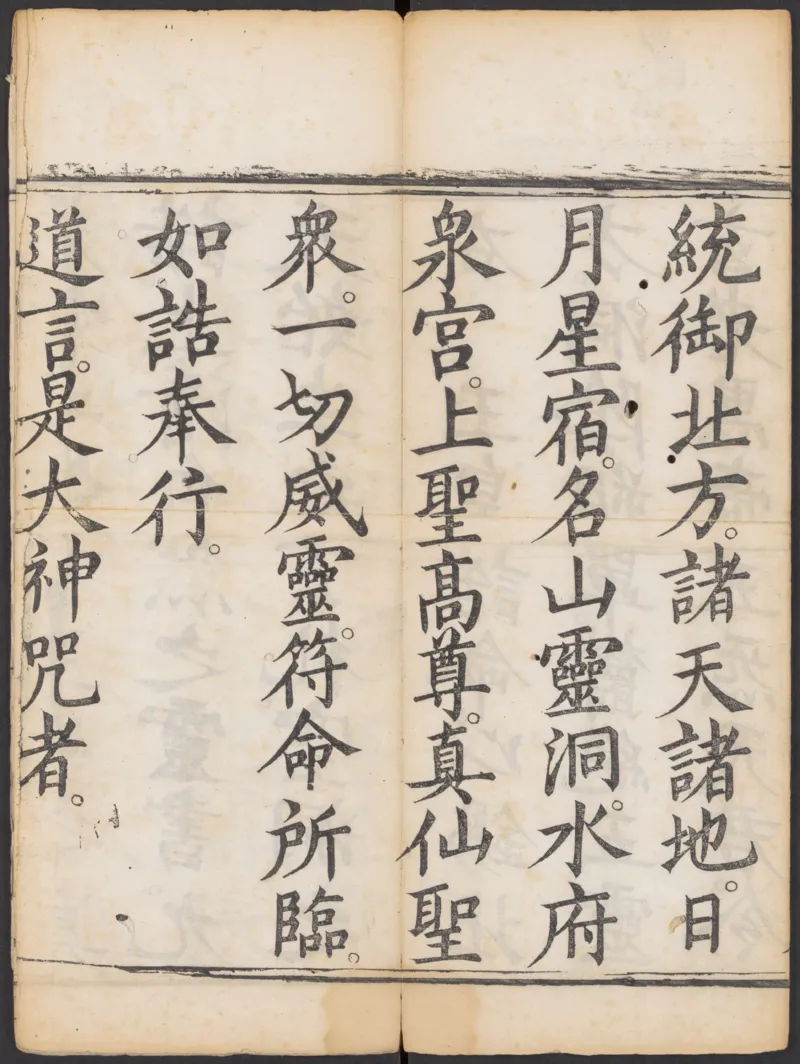 統御北方。諸天諸地。日
月星宿。名山靈洞。水府
泉宮。上聖高尊。真仙聖
衆。一切威靈。符命所臨。
如誥奉行。
道言。是大神咒者。